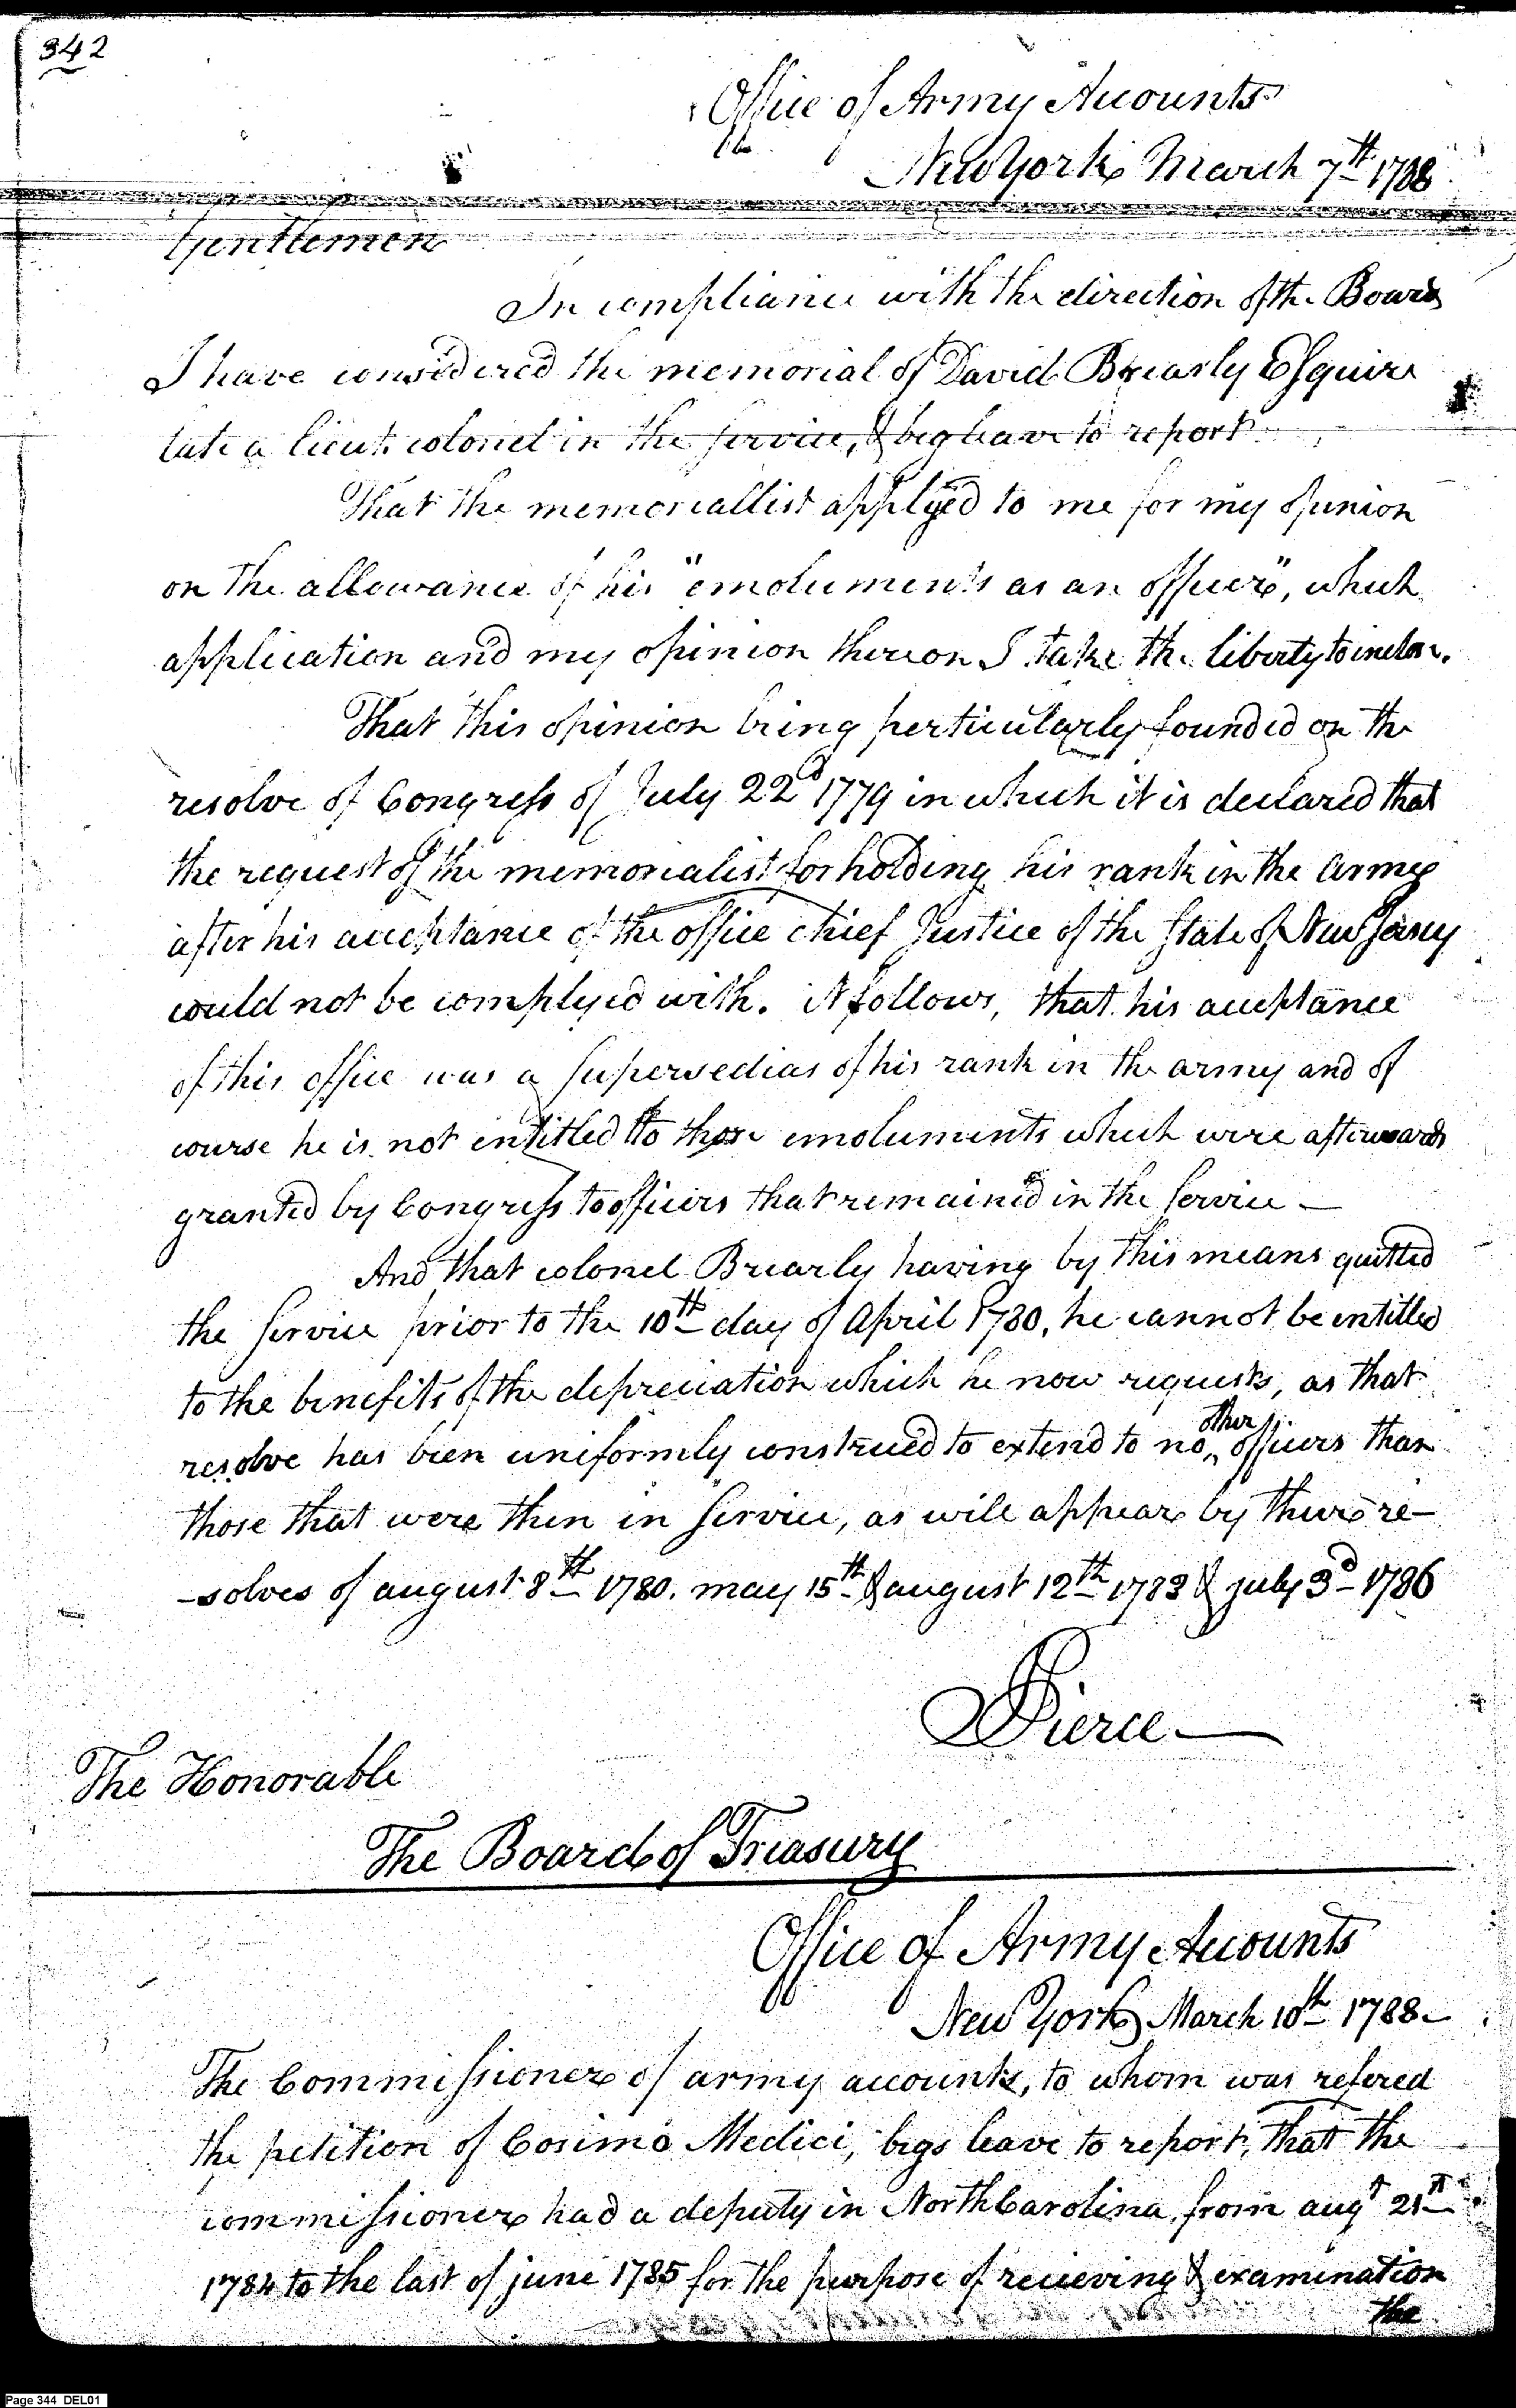 342
Office of Army Accounts
New York March 7th 1788
Gentlemen
In compliance with the direction of the Board
I have considered the memorial of David Brearly Esquire
late a lieut. colonel in the service, & beg leave to report
That the memoriallist applyed to me for my opinion
on the allowance of his "emoluments as an officer", which
application and my opinion thereon I take the liberty to inclose.
That this opinion being perticularly founded on the
resolve of Congress of July 22d 1779 in which it is declared that
the request of the memorialist for holding his rank in the army
after his acceptance of the office chief Justice of the State of New Jersey
could not be complyed with. It follows, that his acceptance
of this office was a supersedias of his rank in the army and of
course he is not entitled to those emoluments which were afterwards
granted by Congress to officers that remained in the service —
And that colonel Brearly having by this means quitted
the service prior to the 10th day of April 1780, he cannot be entitled
to the benefits of the depreciation which he now requests, as that
resolve has been uniformly construed to extend to no other officers than
those that were then in service, as will appear by there re-
-solves of august 8th 1780. may 15th & august 12th 1783 & july 3d 1786
Pierce
The Honorable
The Board of Treasury
Office of Army Accounts
New York March 10th 1788
The Commissioner of army accounts, to whom was refered
the petition of Cosimo Medici, begs leave to report, that the
commissioner had a deputy in North Carolina, from augt 21st
1784 to the last of june 1785 for the purpose of recieving & examination
the
Page 344 DEL01